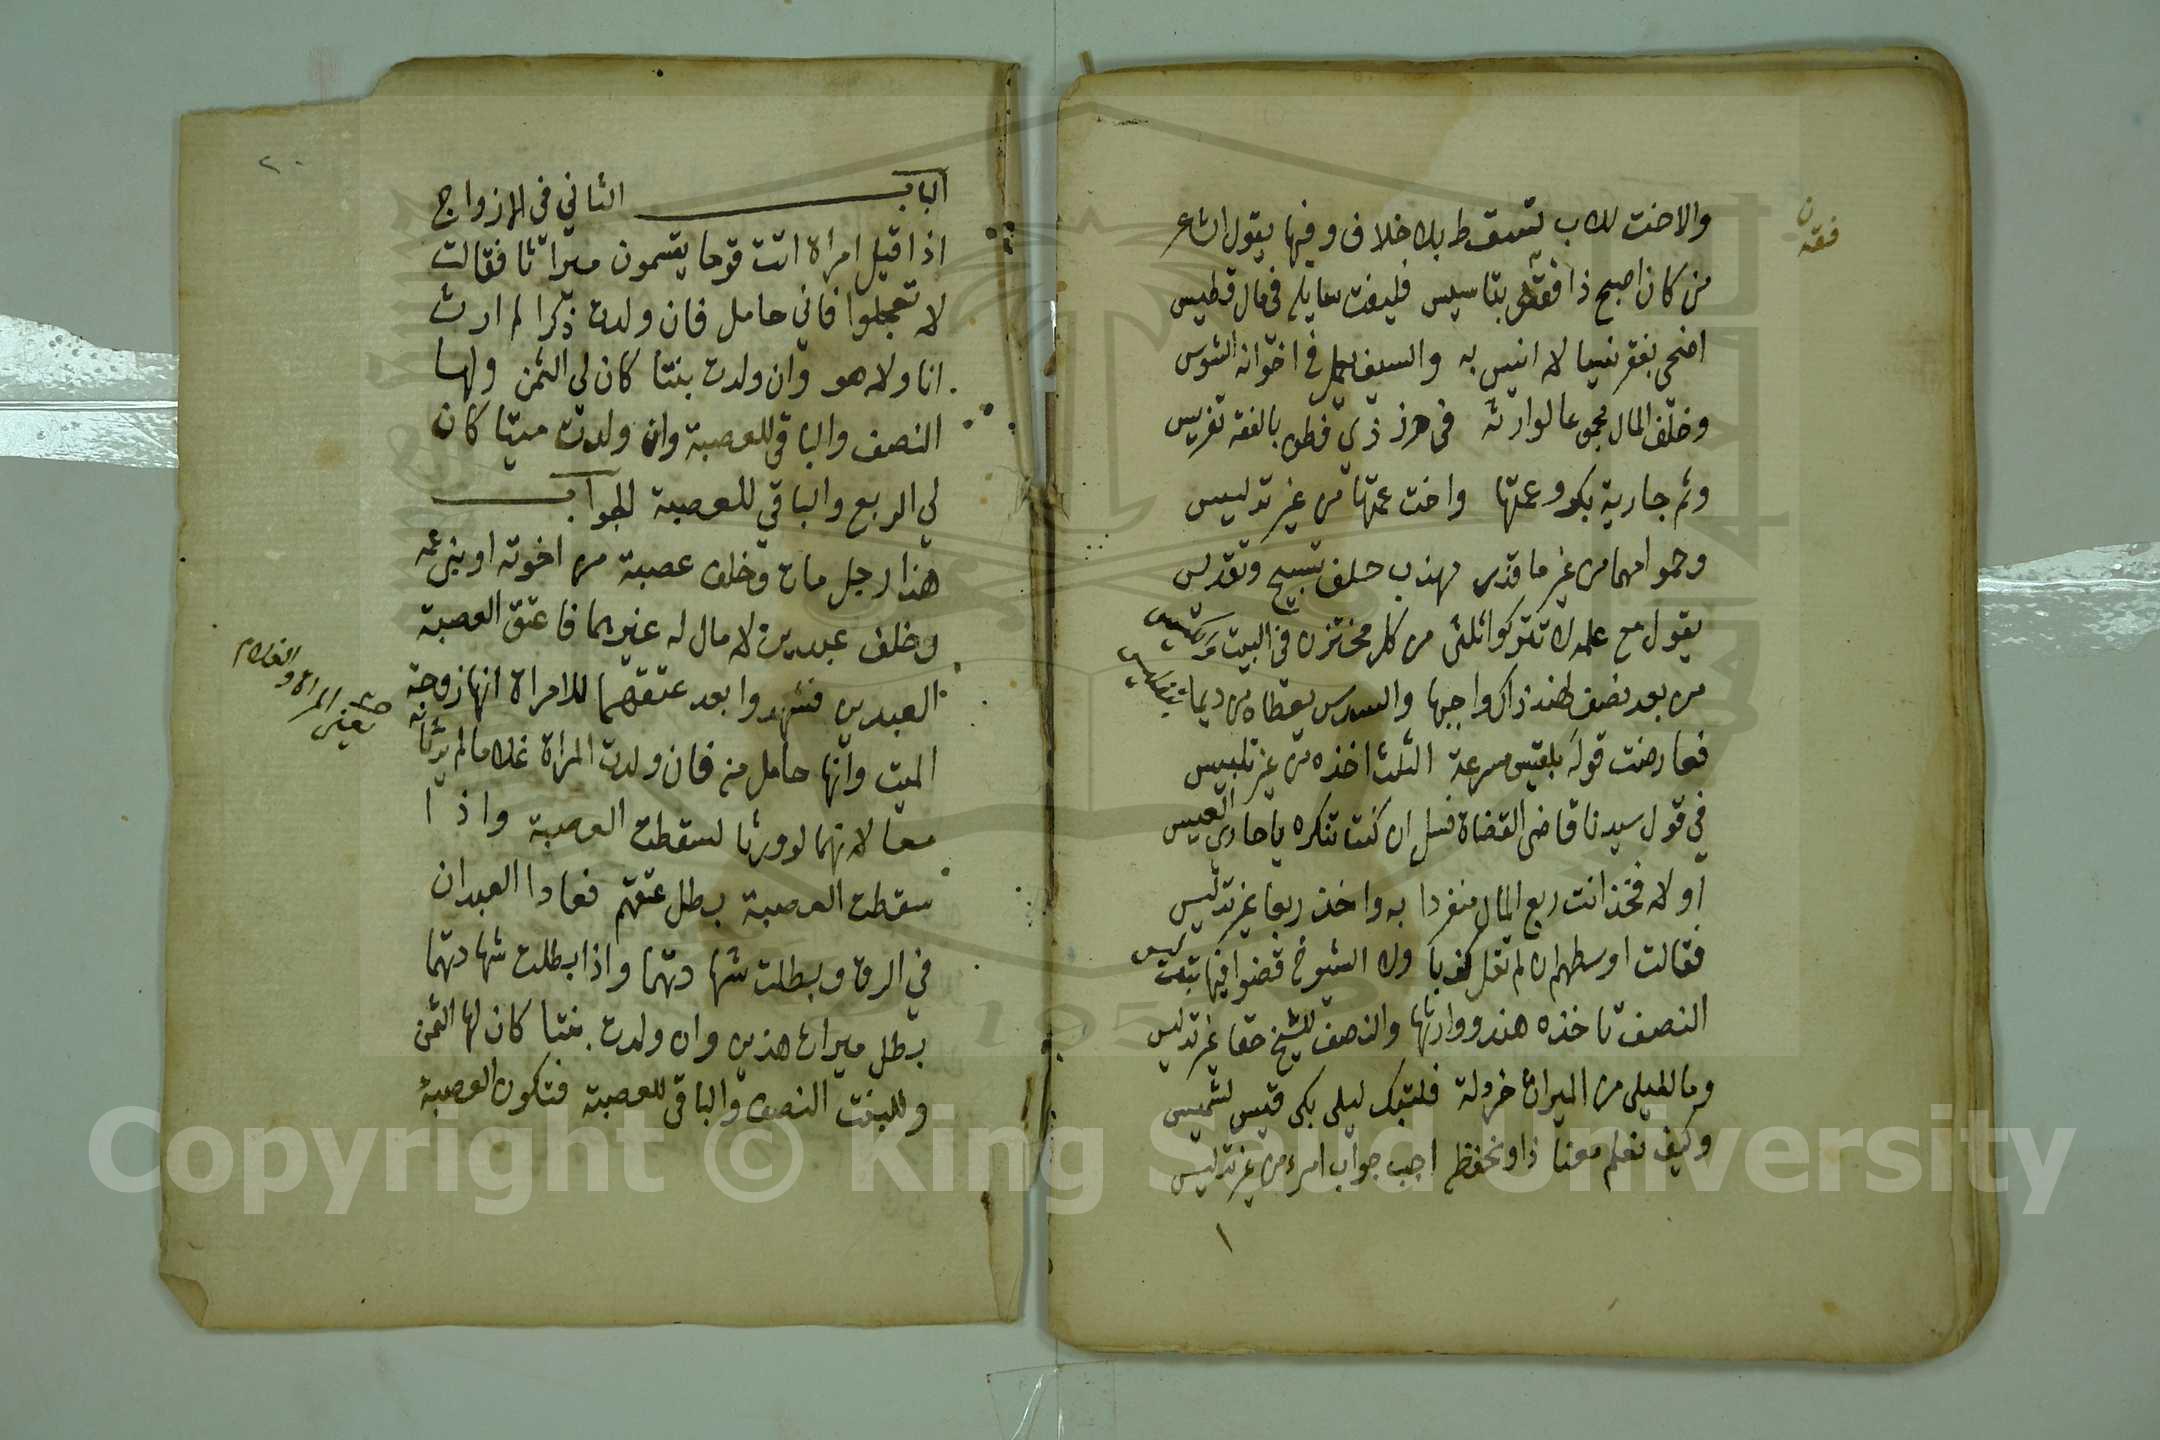 فقه
والاخت للاب تسقط بلا خلاف وفيها يقول الشاعر
من كان اصبح ذا فقه بتاسيس فليفت سايله في مال قطيس
اضحى بفقر لا انيس به والسيف في اخوانه الشوس
وخلف المال مجموعا لوارثه في ذي فطن بالفقه تفريس
وثم جارية بكر وعمتها واخت عمتها من غير تدليس
وحموا امها من غير ما قذر مهذب حلف تسبيح وتقديس
يقول مع علم لا تتركوا ثلثى من كل مختزن في البيت
من بعد نصف لهند ذاك واجبها والسدس
فعارضت قوله بلقيس مسرعة الثلث اخذه من غير تلبيس
في قول سيدنا قاضى القضاة فسل ان كنت تنكره يا حادي العيس
او لا فخذ انت ربع المال منفردا به واخذ ربعا غير تدليس
فقالت اوسطهم ان لم تقل كذبا ولا الشيوخ قضوا فيها
النصف تاخذه هند ووارثها والنصف للشيخ حقا غير تدليس
وما لليلى من الميراث خردلة فلتبك ليلى بكى قيس لشميس
وكيف تعلم معنا ذا وتحفظه اجب جواب امرء من غير تدليس
١
٢٠
الباب الثاني في الازواج
اذا قيل امراة اتت قوما يقسمون ميراثا فقالت
لا تعجلوا فاني حامل فان ولدت ذكرا لم ارث
انا ولا هو وان ولدت بنتا كان لي الثمن ولها
النصف والباقي للعصبة وان ولدت ميتا كان
لي الربع والباقي للعصبة الجواب
هذا رجل مات وخلف عصبة من اخوته او بني عمه
وخلف عبدين لا مال له غيرهما فاعتق العصبة
العبدين فشهدوا بعد عتقهما للامراة انها زوجة
الميت وانها حامل منه فان ولدت المراة غلاما لم يرثاته
يعني المراة والغلام
معا لانهما لو ورثا لسقطت العصبة واذا
سقطت العصبة بطل عتقهم فعادا العبدان
في الرق وبطلت شهادتهما واذا بطلت شهادتهما
بطل ميراث هذين وان ولدت بنتا كان لها الثمن
وللبنت النصف والباقي للعصبة فتكون العصبة
Copyright © King Saud University